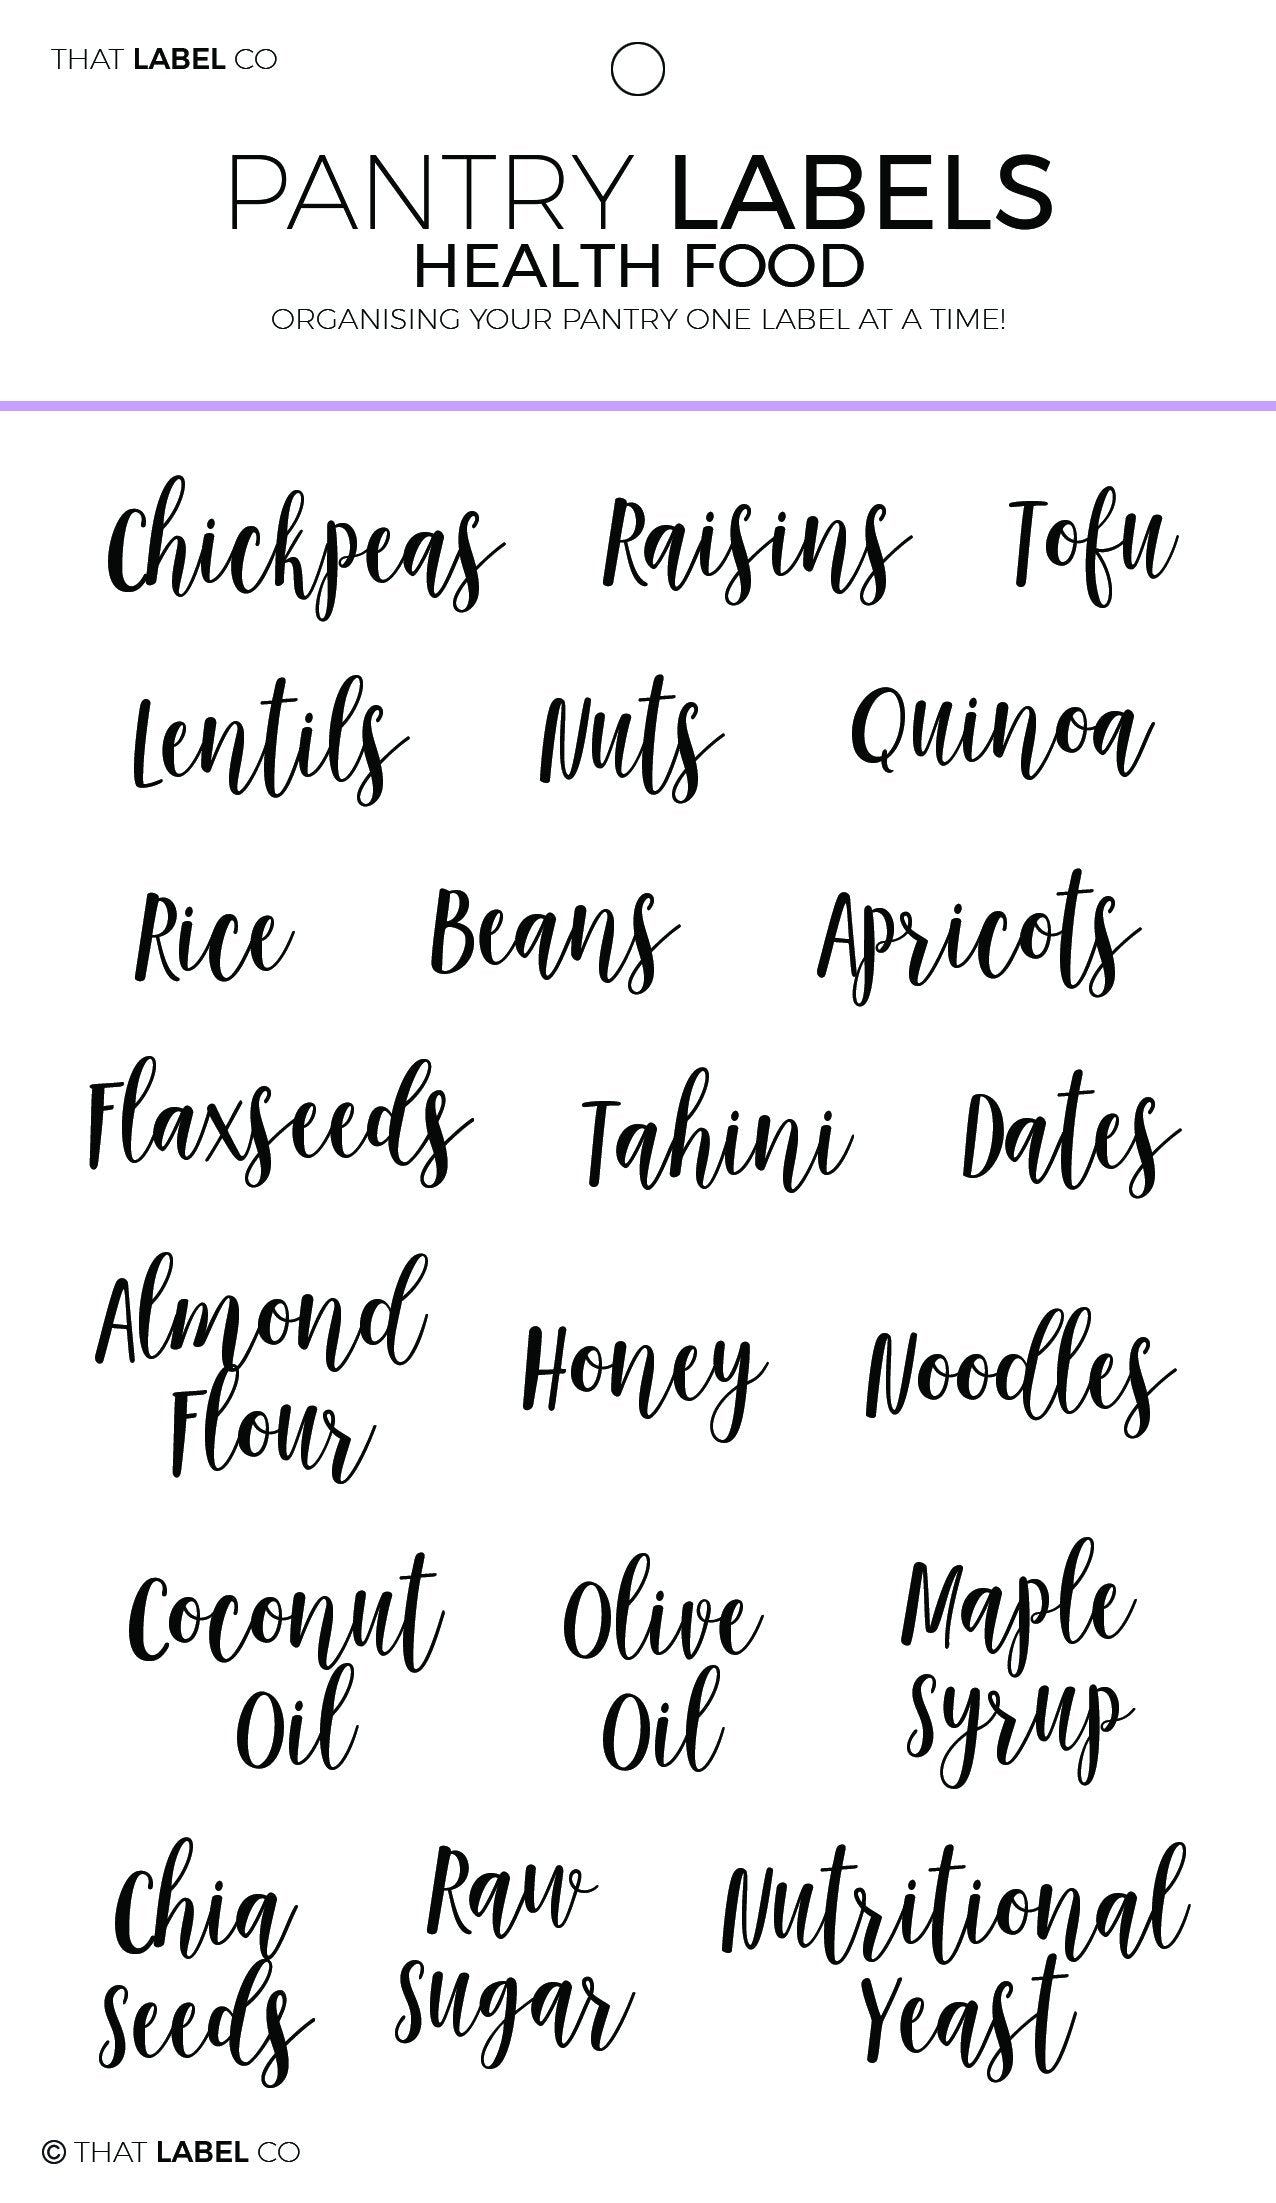 THAT LABEL CO
PANTRY LABELS
HEALTH FOOD
ORGANISING YOUR PANTRY ONE LABEL AT A TIME!
Chickpeas Raisins Tofu
Lentils Nuts Quinoa
Rice Beans Apricots
Flaxseeds Tahini Dates
Almond
Flour
Honey Noodles
Coconut
Oil
Olive
Oil
Maple
Syrup
Chia
Seeds
Raw
Sugar
Nutritional
Yeast
© THAT LABEL CO